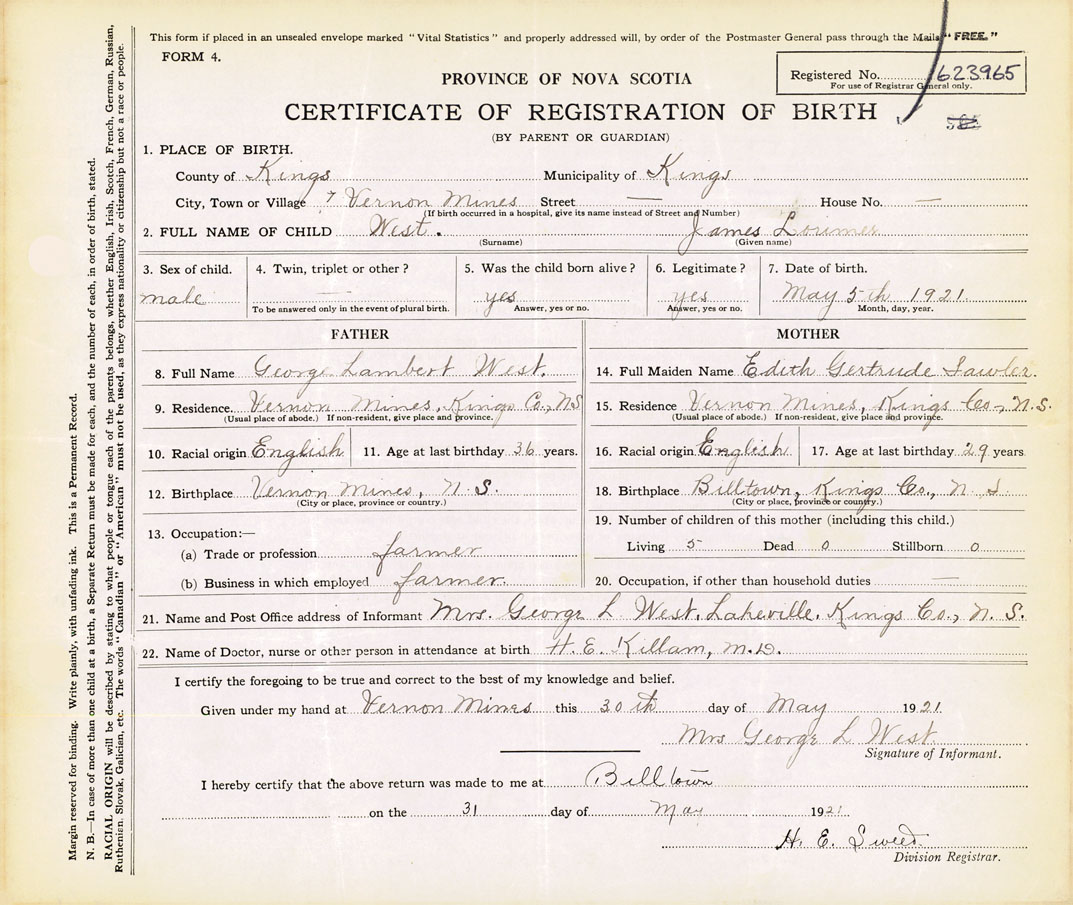 This form if placed in an unsealed envelope marked "Vital Statistics" and properly addressed will, by order of the Postmaster General pass through the Mails "FREE."
FORM 4.
Registered No. 623965
For use of Registrar General only.
PROVINCE OF NOVA SCOTIA
CERTIFICATE OF REGISTRATION OF BIRTH
(BY PARENT OR GUARDIAN)
1. PLACE OF BIRTH.
County of Kings Municipality of Kings
City, Town or Village Vernon Mines Street — House No. —
(If birth occurred in a hospital, give its name instead of Street and Number)
2. FULL NAME OF CHILD West. James Lorimer
(Surname) (Given name)
3. Sex of child. 4. Twin, triplet or other? 5. Was the child born alive? 6. Legitimate? 7. Date of birth.
male — yes yes May 5th 1921
To be answered only in the event of plural birth. Answer, yes or no. Answer, yes or no. Month, day, year.
FATHER
8. Full Name George Lambert West.
9. Residence. Vernon Mines, Kings Co., N.S
(Usual place of abode.) If non-resident, give place and province.
10. Racial origin English 11. Age at last birthday 36 years.
12. Birthplace Vernon Mines, N. S.
(City or place, province or country.)
13. Occupation:—
(a) Trade or profession farmer
(b) Business in which employed farmer.
MOTHER
14. Full Maiden Name Edith Gertrude Lawler.
15. Residence Vernon Mines, Kings Co., N.S.
(Usual place of abode.) If non-resident, give place and province.
16. Racial origin English 17. Age at last birthday 29 years
18. Birthplace Billtown, Kings Co., N. S
(City or place, province or country.)
19. Number of children of this mother (including this child.)
Living 5 Dead 0 Stillborn 0
20. Occupation, if other than household duties —
21. Name and Post Office address of Informant Mrs. George L West, Lakeville, Kings Co., N. S.
22. Name of Doctor, nurse or other person in attendance at birth H. E. Killam, M.D.
I certify the foregoing to be true and correct to the best of my knowledge and belief.
Given under my hand at Vernon Mines this 30th day of May 1921
Mrs George L West
Signature of Informant.
I hereby certify that the above return was made to me at Billtown
on the 31 day of May 1921
H. E. Sweet
Division Registrar.
Margin reserved for binding. Write plainly, with unfading ink. This is a Permanent Record.
N. B.—In case of more than one child at a birth, a Separate Return must be made for each, and the number of each, in order of birth, stated.
RACIAL ORIGIN will be described by stating to what people or tongue each of the parents belongs, whether English, Irish, Scotch, French, German, Russian,
Ruthenian, Slovak, Galician, etc. The words "Canadian" or "American" must not be used, as they express nationality or citizenship but not a race or people.